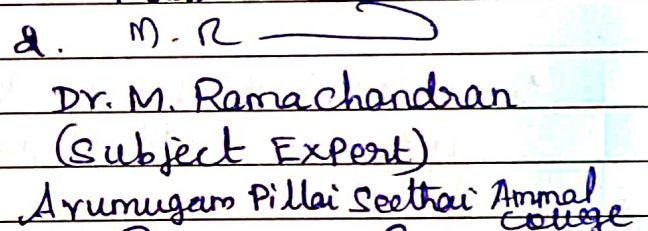 2. M. R
Dr. M. Ramachandran
(Subject Expert)
Arumugam Pillai Seethai Ammal
College